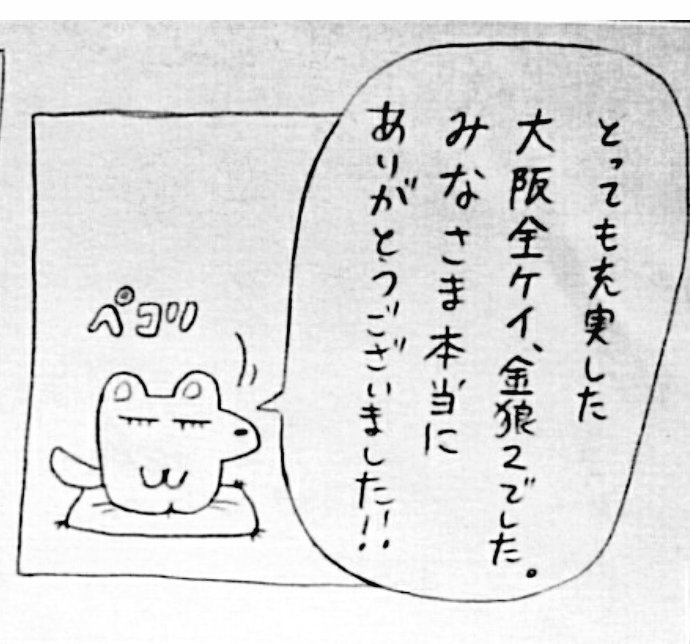 とっても充実した
大阪全ケイ、金狼2でした。
みなさま本当に
ありがとうございました!!
ペコリ